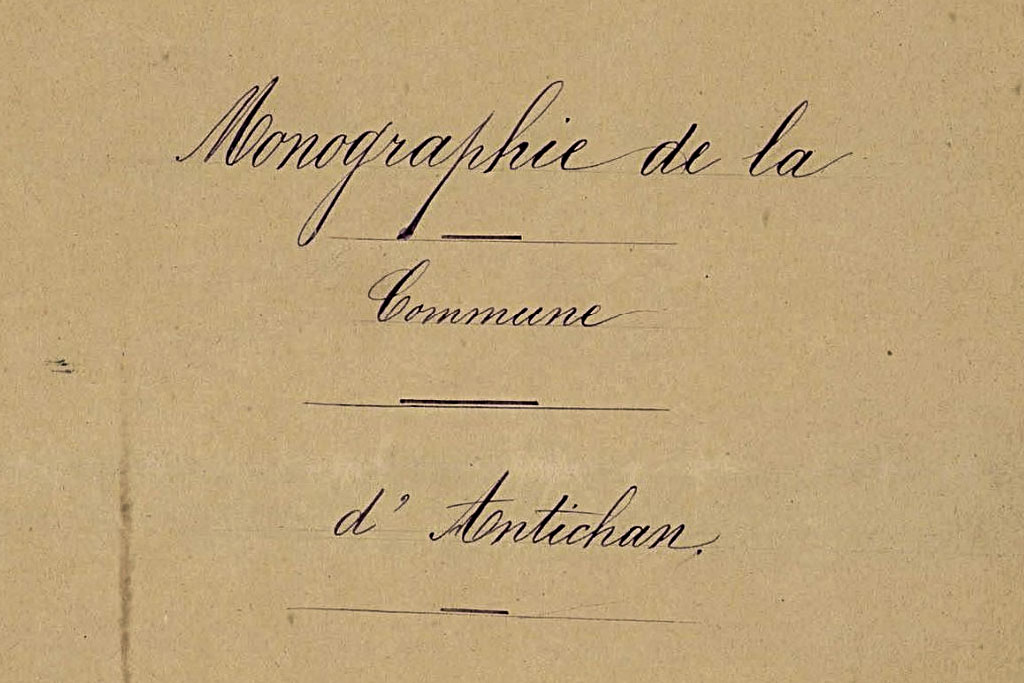 Monographie de la
Commune
d'Antichan.